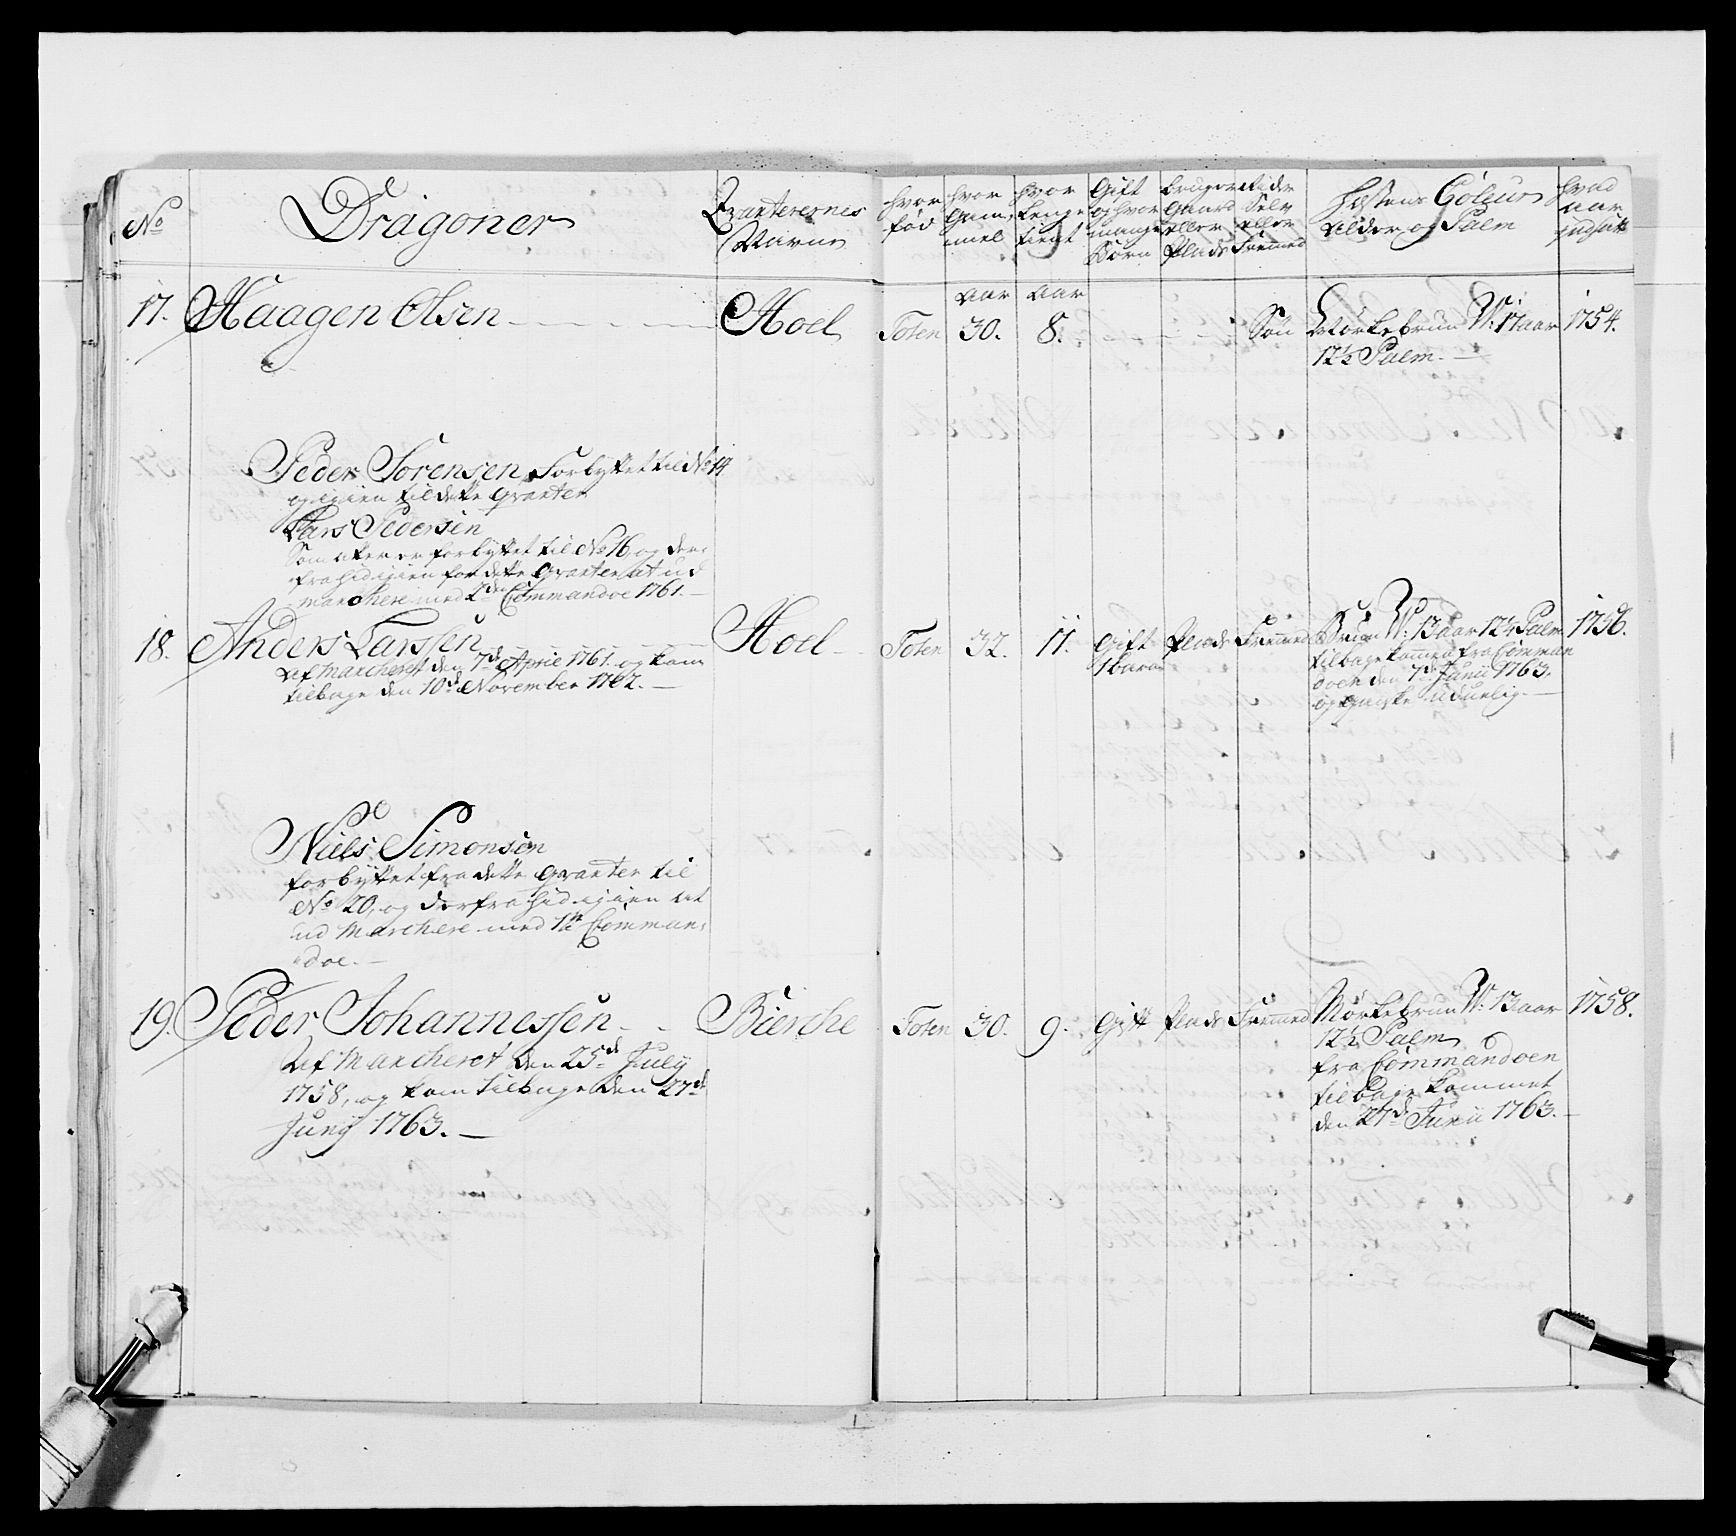 No
Dragoner
Qvarterernes
Navne
hvor
fød
hvor
Gam,
mel
hvor
Lenge
tient
Gift
og hvor
mange
Børn
bruger
Gaard
eller
Plads
Rider
Selv
eller
Fremmed
Hæstens Coleur
Alder og Palm
hvad
Aar
indsatt
17. Haagen Olsen
Hoel
Toten
Aar
30.
Aar
8.
Søn
Mörkebrun W: 17 aar
12½ Palm.
1754.
Peder Sørensen, Forbyttet til No 14
og igien til dette Qvarter
Lars Pedersen
Som atter er forbyttet til No 16 og der,
fra hid igien for dette Qvarter at ud
marchere med 2den Commandoe 1761.
18. Anders Larssen
Af Marcheret den 7de April 1761. og kom
tilbage den 10de November 1762.
Hoel
Toten 32. 11. Gift
1 barn
Plads Fremmed
Brun W: 13 aar 12½ Palm
tilbage kommen fra Comman
doen den 7de Junii 1763.
og ganske udu̇elig.
1756.
Niels Simonsen
forbyttet fra dette Qvarter til
No 20, og derfra hid igien at
ud Marchere med 1te Comman,
doe.
19. Peder Johannessen
Af Marcheret den 25de July
1758, og kom tilbage den 27de
Juny 1763.
Bierche
Toten 30. 9. Gift Plads Fremmed
Mörkebrun W: 13 aar
12½ Palm
fra Commandoen
tilbage kommet
den 27de Junii 1763.
1758.